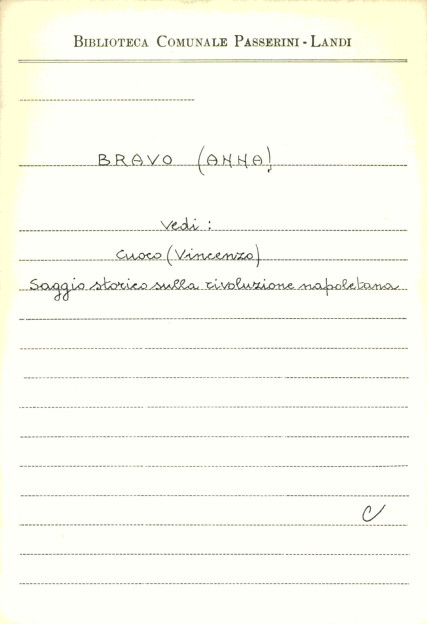 BIBLIOTECA COMUNALE PASSERINI - LANDI
BRAVO (ANNA)
vedi :
Cuoco (Vincenzo)
Saggio storico sulla rivoluzione napoletana
C